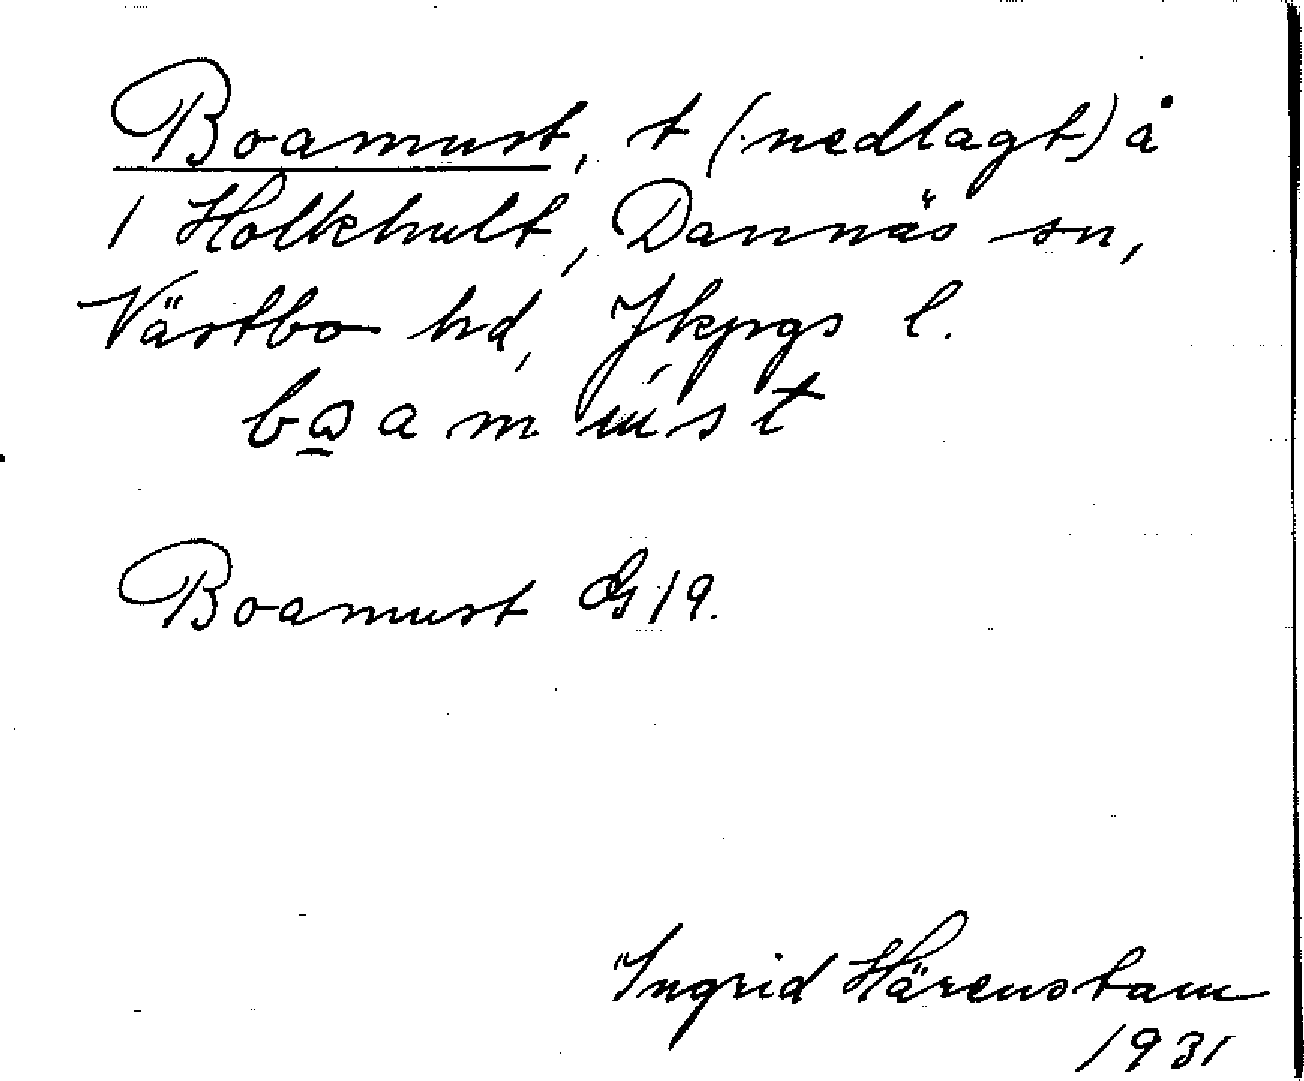 Boamust, t (nedlagt) å
1 Holkhult, Dannäs sn,
Västbo hd, Jkpgs l.
boamust
Boamust G 19.
Ingrid Härenstam
1931